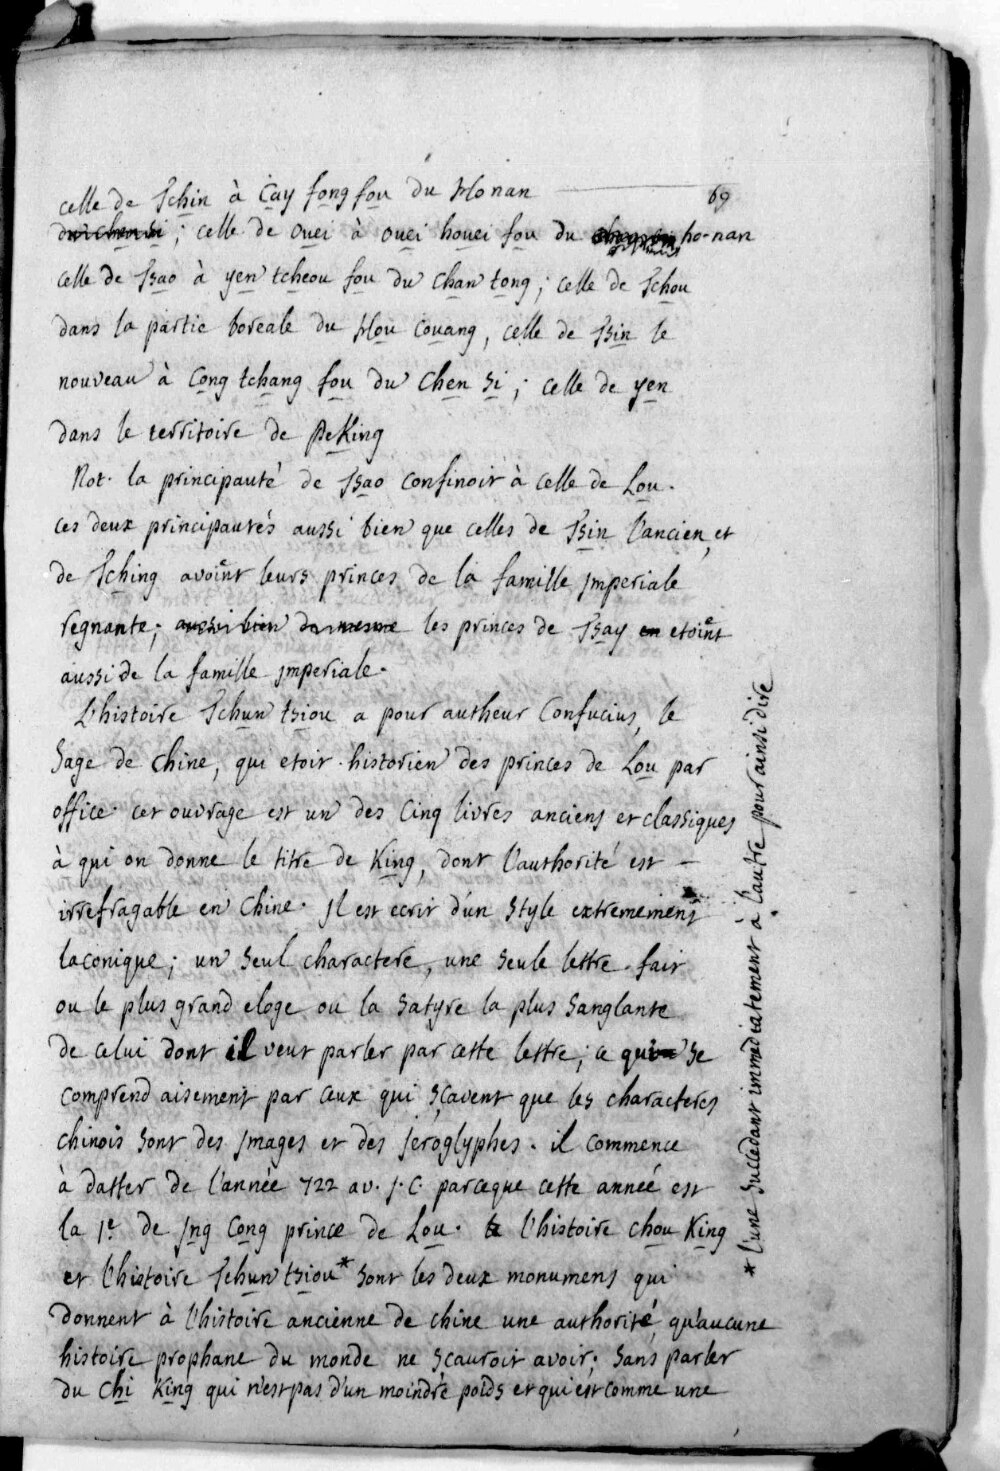 69
celle de Tchin à Cay fong fou du Honan
du chensi; celle de ouei à ouei houei fou du ho-nan
celle de Tsao à yen tcheou fou du chan tong; celle de Tchou
dans la partie boreale du Hou couang, celle de Tsin le
nouveau à Cong tchang fou du Chen si; celle de yen
dans le territoire de PeKing
Not. la principauté de Tsao confinoit à celle de Lou.
ces deux principautés aussi bien que celles de Tsin l'ancien, et
de Tching avoient leurs princes de la famille jmperiale
regnante; aussi bien de mesme les princes de Tsay en etoient
aussi de la famille jmperiale.
L'histoire Tchun tsiou a pour autheur Confucius, le
Sage de Chine, qui etoit historien des princes de Lou par
office. cet ouvrage est un des Cinq livres anciens et classiques
à qui on donne le titre de King, dont l'authorité est —
irrefragable en Chine. jl est ecrit d'un style extremement
laconique; un seul charactere, une seule lettre fait
ou le plus grand eloge ou la satyre la plus sanglante
de celui dont il veut parler par cette lettre; ce qui se
comprend aisement par ceux qui sçavent que les characteres
chinois sont des jmages et des jeroglyphes. il commence
à datter de l'année 722 av. j. C. parceque cette année est
la 1e de jng Cong prince de Lou. le l'histoire chou King
et l'histoire Tchun tsiou* sont les deux monumens qui
donnent à l'histoire ancienne de chine une authorité, qu'aucune
histoire prophane du monde ne scauroit avoir; sans parler
du Chi King qui n'est pas d'un moindre poids et qui est comme une
* l'une succedant immediatement à l'autre pour ainsi dire